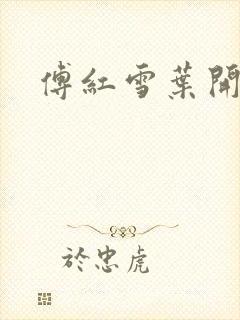 傅紅雪葉開
於忠虎